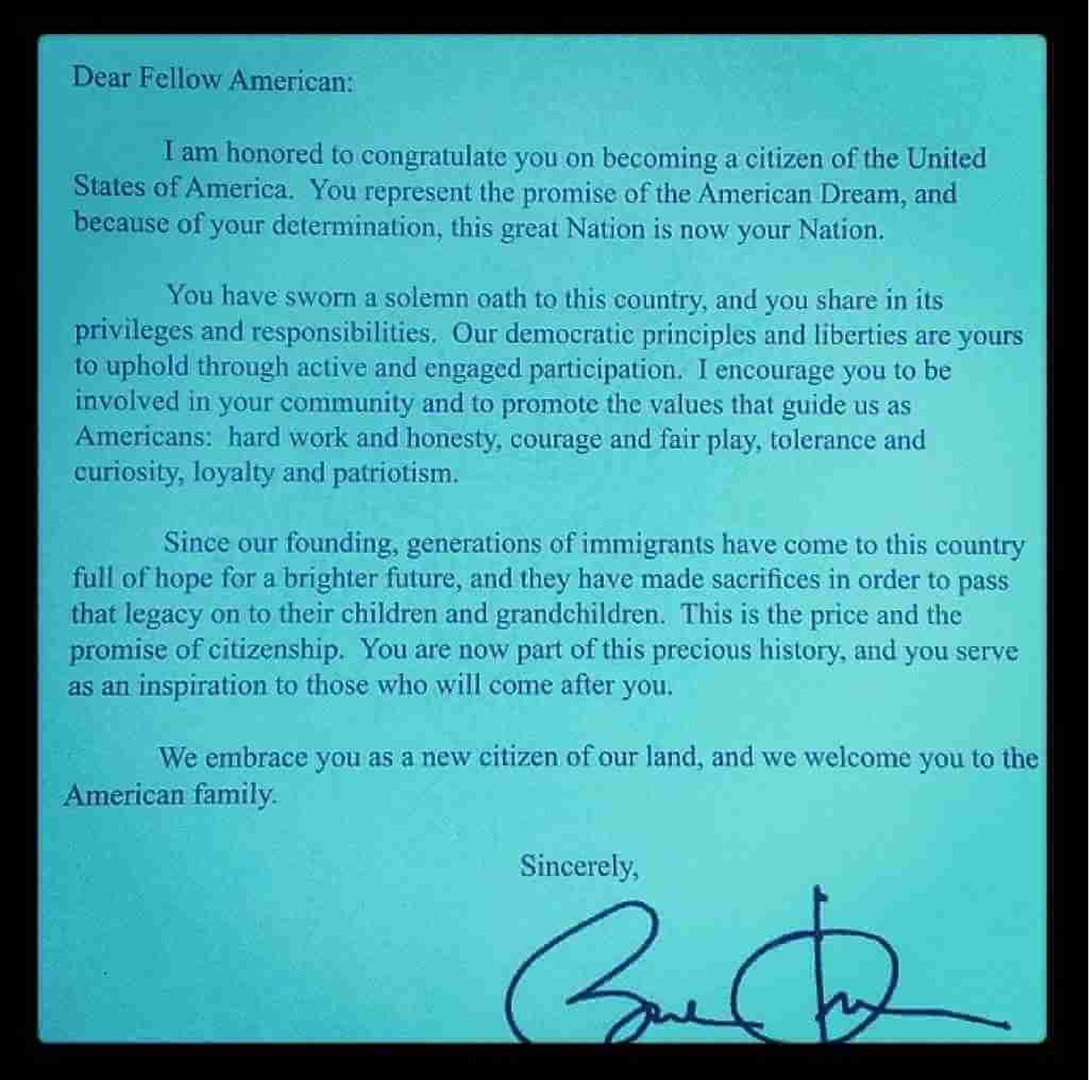 Dear Fellow American:
I am honored to congratulate you on becoming a citizen of the United
States of America. You represent the promise of the American Dream, and
because of your determination, this great Nation is now your Nation.
You have sworn a solemn oath to this country, and you share in its
privileges and responsibilities. Our democratic principles and liberties are yours
to uphold through active and engaged participation. I encourage you to be
involved in your community and to promote the values that guide us as
Americans: hard work and honesty, courage and fair play, tolerance and
curiosity, loyalty and patriotism.
Since our founding, generations of immigrants have come to this country
full of hope for a brighter future, and they have made sacrifices in order to pass
that legacy on to their children and grandchildren. This is the price and the
promise of citizenship. You are now part of this precious history, and you serve
as an inspiration to those who will come after you.
We embrace you as a new citizen of our land, and we welcome you to the
American family.
Sincerely,